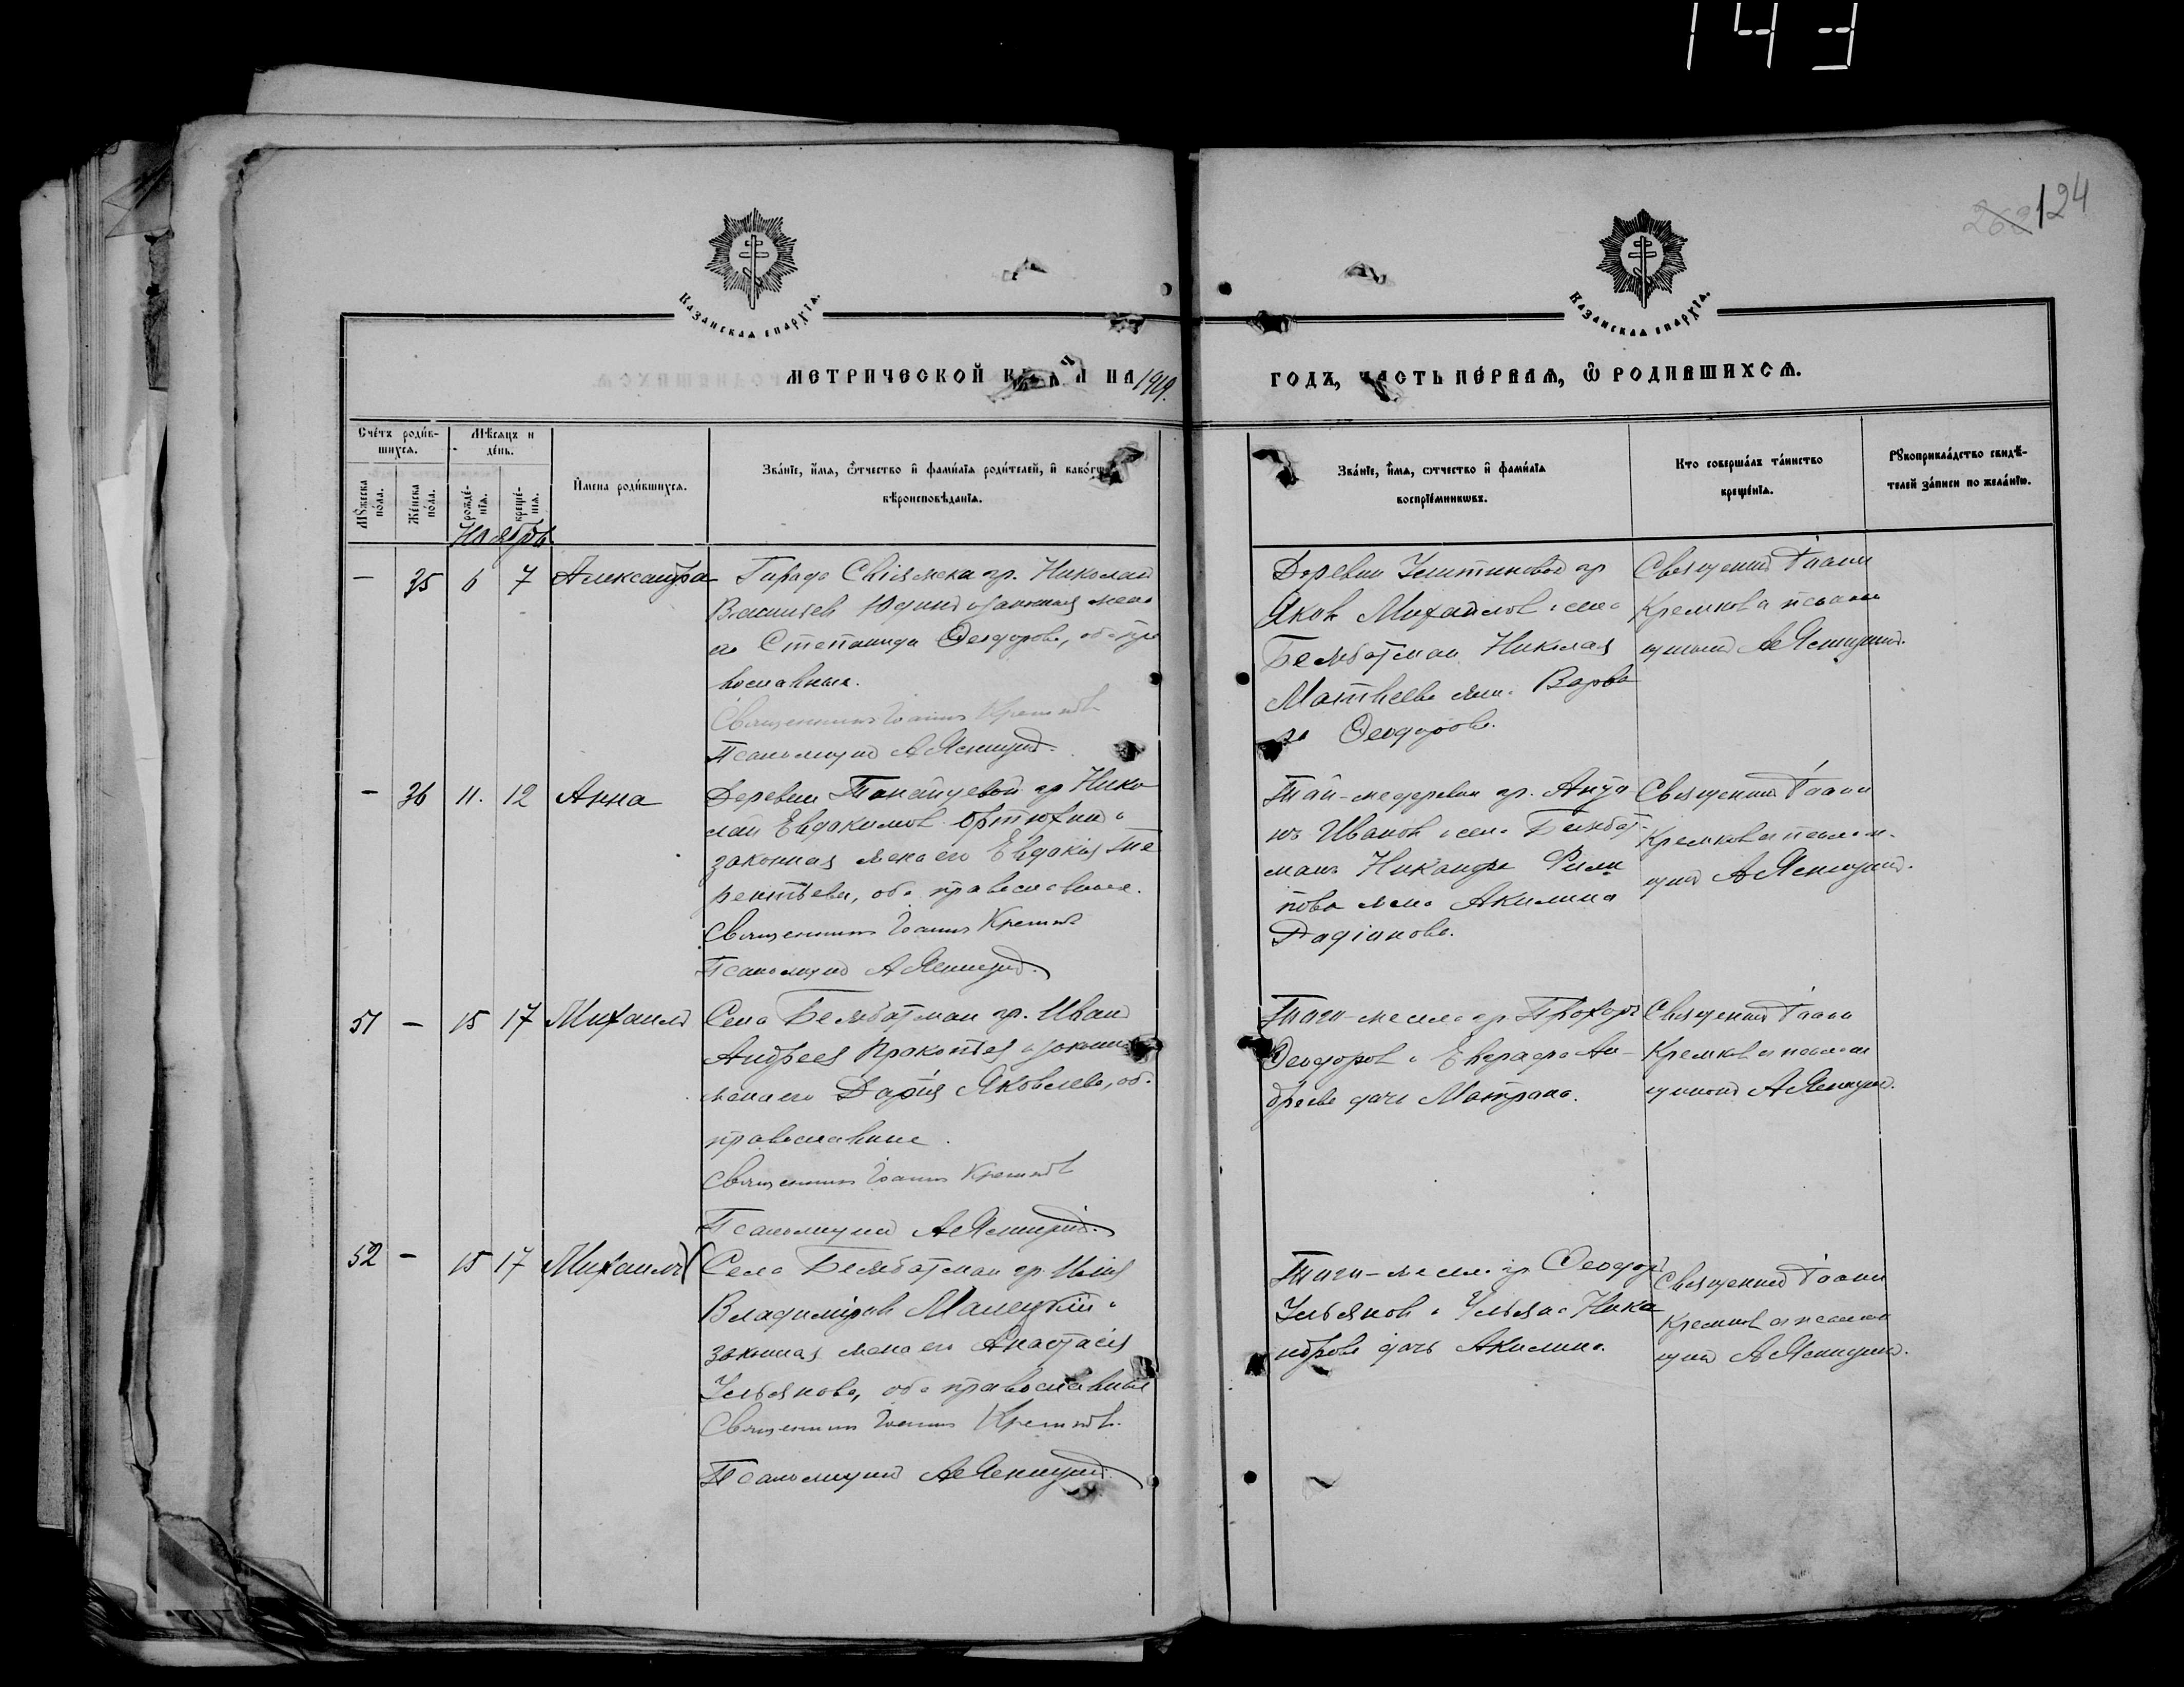 143
263 124
Казанская епархїѧ.
Казанская епархїѧ.
МЕТРИЧЕСКОЙ НА 1919.
ГОДЪ, ЧАСТЬ ПЕ́РВАѦ, Ѽ РОДИВШИХСѦ.
Сче́тъ роди́вшихсѧ.
Мѣ́сѧцъ и де́нь.
Мꙋ́жеска по́ла.
Же́нска по́ла.
рожде́нїѧ.
креще́нїѧ.
И҆мена роди́вшихсѧ.
Зва́нїе, и҆́мѧ, ѻ҆́тчество и҆ фами́лїѧ роди́телей, и҆ како́гѡ
вѣроисповѣ́данїѧ.
Зва́нїе, и҆́мѧ, ѻтчество и҆ фами́лїѧ
воспрїе́мникѡвъ.
Кто соверша́лъ та́инство
креще́нїѧ.
Рꙋкоприкла́дство свидѣ́телей за́писи по жела́нїю.
Ноябрь
— 35 6 7 Александра
Города Свіяжска гр. Николай
Васильев Юдинъ и законная жена
его Степанида Ѳеодорова, оба пра
вославные.
Священникъ Іоаннъ Кремков
Псаломщикъ А Ясницкій.
Деревни гр
Яков Михайлов и села
Бежботман Николая
Матвеева жена Варва
ра Ѳеодорова.
Священникъ Іоанн
Кремков и псалом
щикъ А Ясницкій.
— 36 11. 12 Анна
Деревни гр Нико
лай Евдокимов и
законная жена его Евдокія Те
рентьева, оба православные.
Священникъ Іоаннъ Кремков
Псаломщикъ А Ясницкій.
Той-же деревни гр.
Иванов и села Бежбот
манъ Никандра Филип
пова жена Акилина
Родіонова.
Священникъ Іоанн
Кремков и псалом
щикъ А Ясницкій.
51 — 15 17 Михаилъ
Села Бежботман гр. Иван
Андреев и законная
жена его Дарія Яковлева, оба
православные.
Священникъ Іоаннъ Кремков
Псаломщикъ А Ясницкій.
Того-же села гр. Прохоръ
Ѳеодоров и Ан
дреева дочь Матрона.
Священникъ Іоанн
Кремков и псалом
щикъ А Ясницкій.
52 — 15 17 Михаилъ
Села Бежботман гр. Илія
Владиміров и
законная жена его Анастасія
Ульянова, оба православные
Священникъ Іоаннъ Кремков.
Псаломщикъ А Ясницкій.
Того-же села гр Ѳеодор
Ульянов и Ульяна Ника
ндрова дочь Акилина.
Священникъ Іоанн
Кремков и псалом
щикъ А Ясницкій.